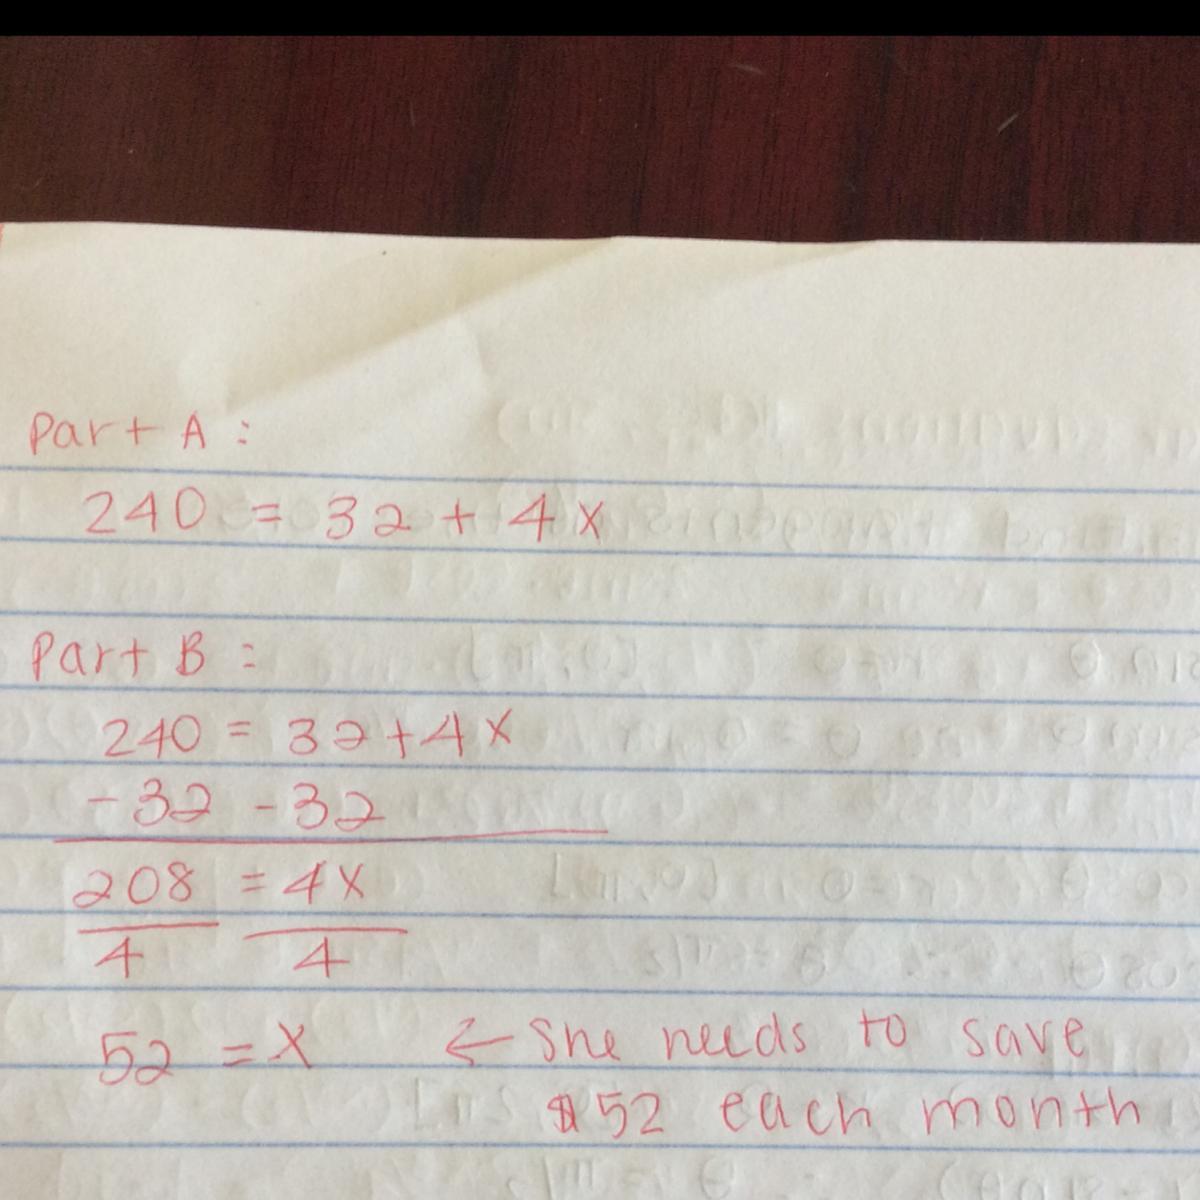 Part A :
240 = 32 + 4x
Part B :
240 = 32 + 4x
- 32 - 32
208 = 4x
4 4
52 = x ← She needs to save
$52 each month